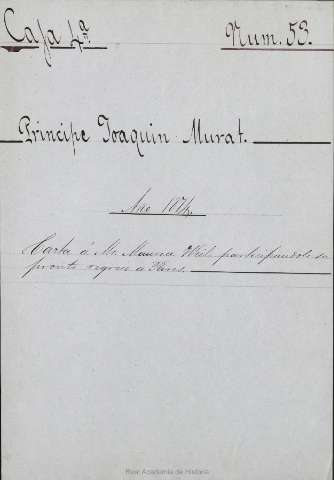 Caja 4ª
Num. 53.
Principe Joaquin Murat.
Año 1874.
Carta á Mr. Maurice Weil participandole su
pronto regreso a Paris.
Real Academia de Historia